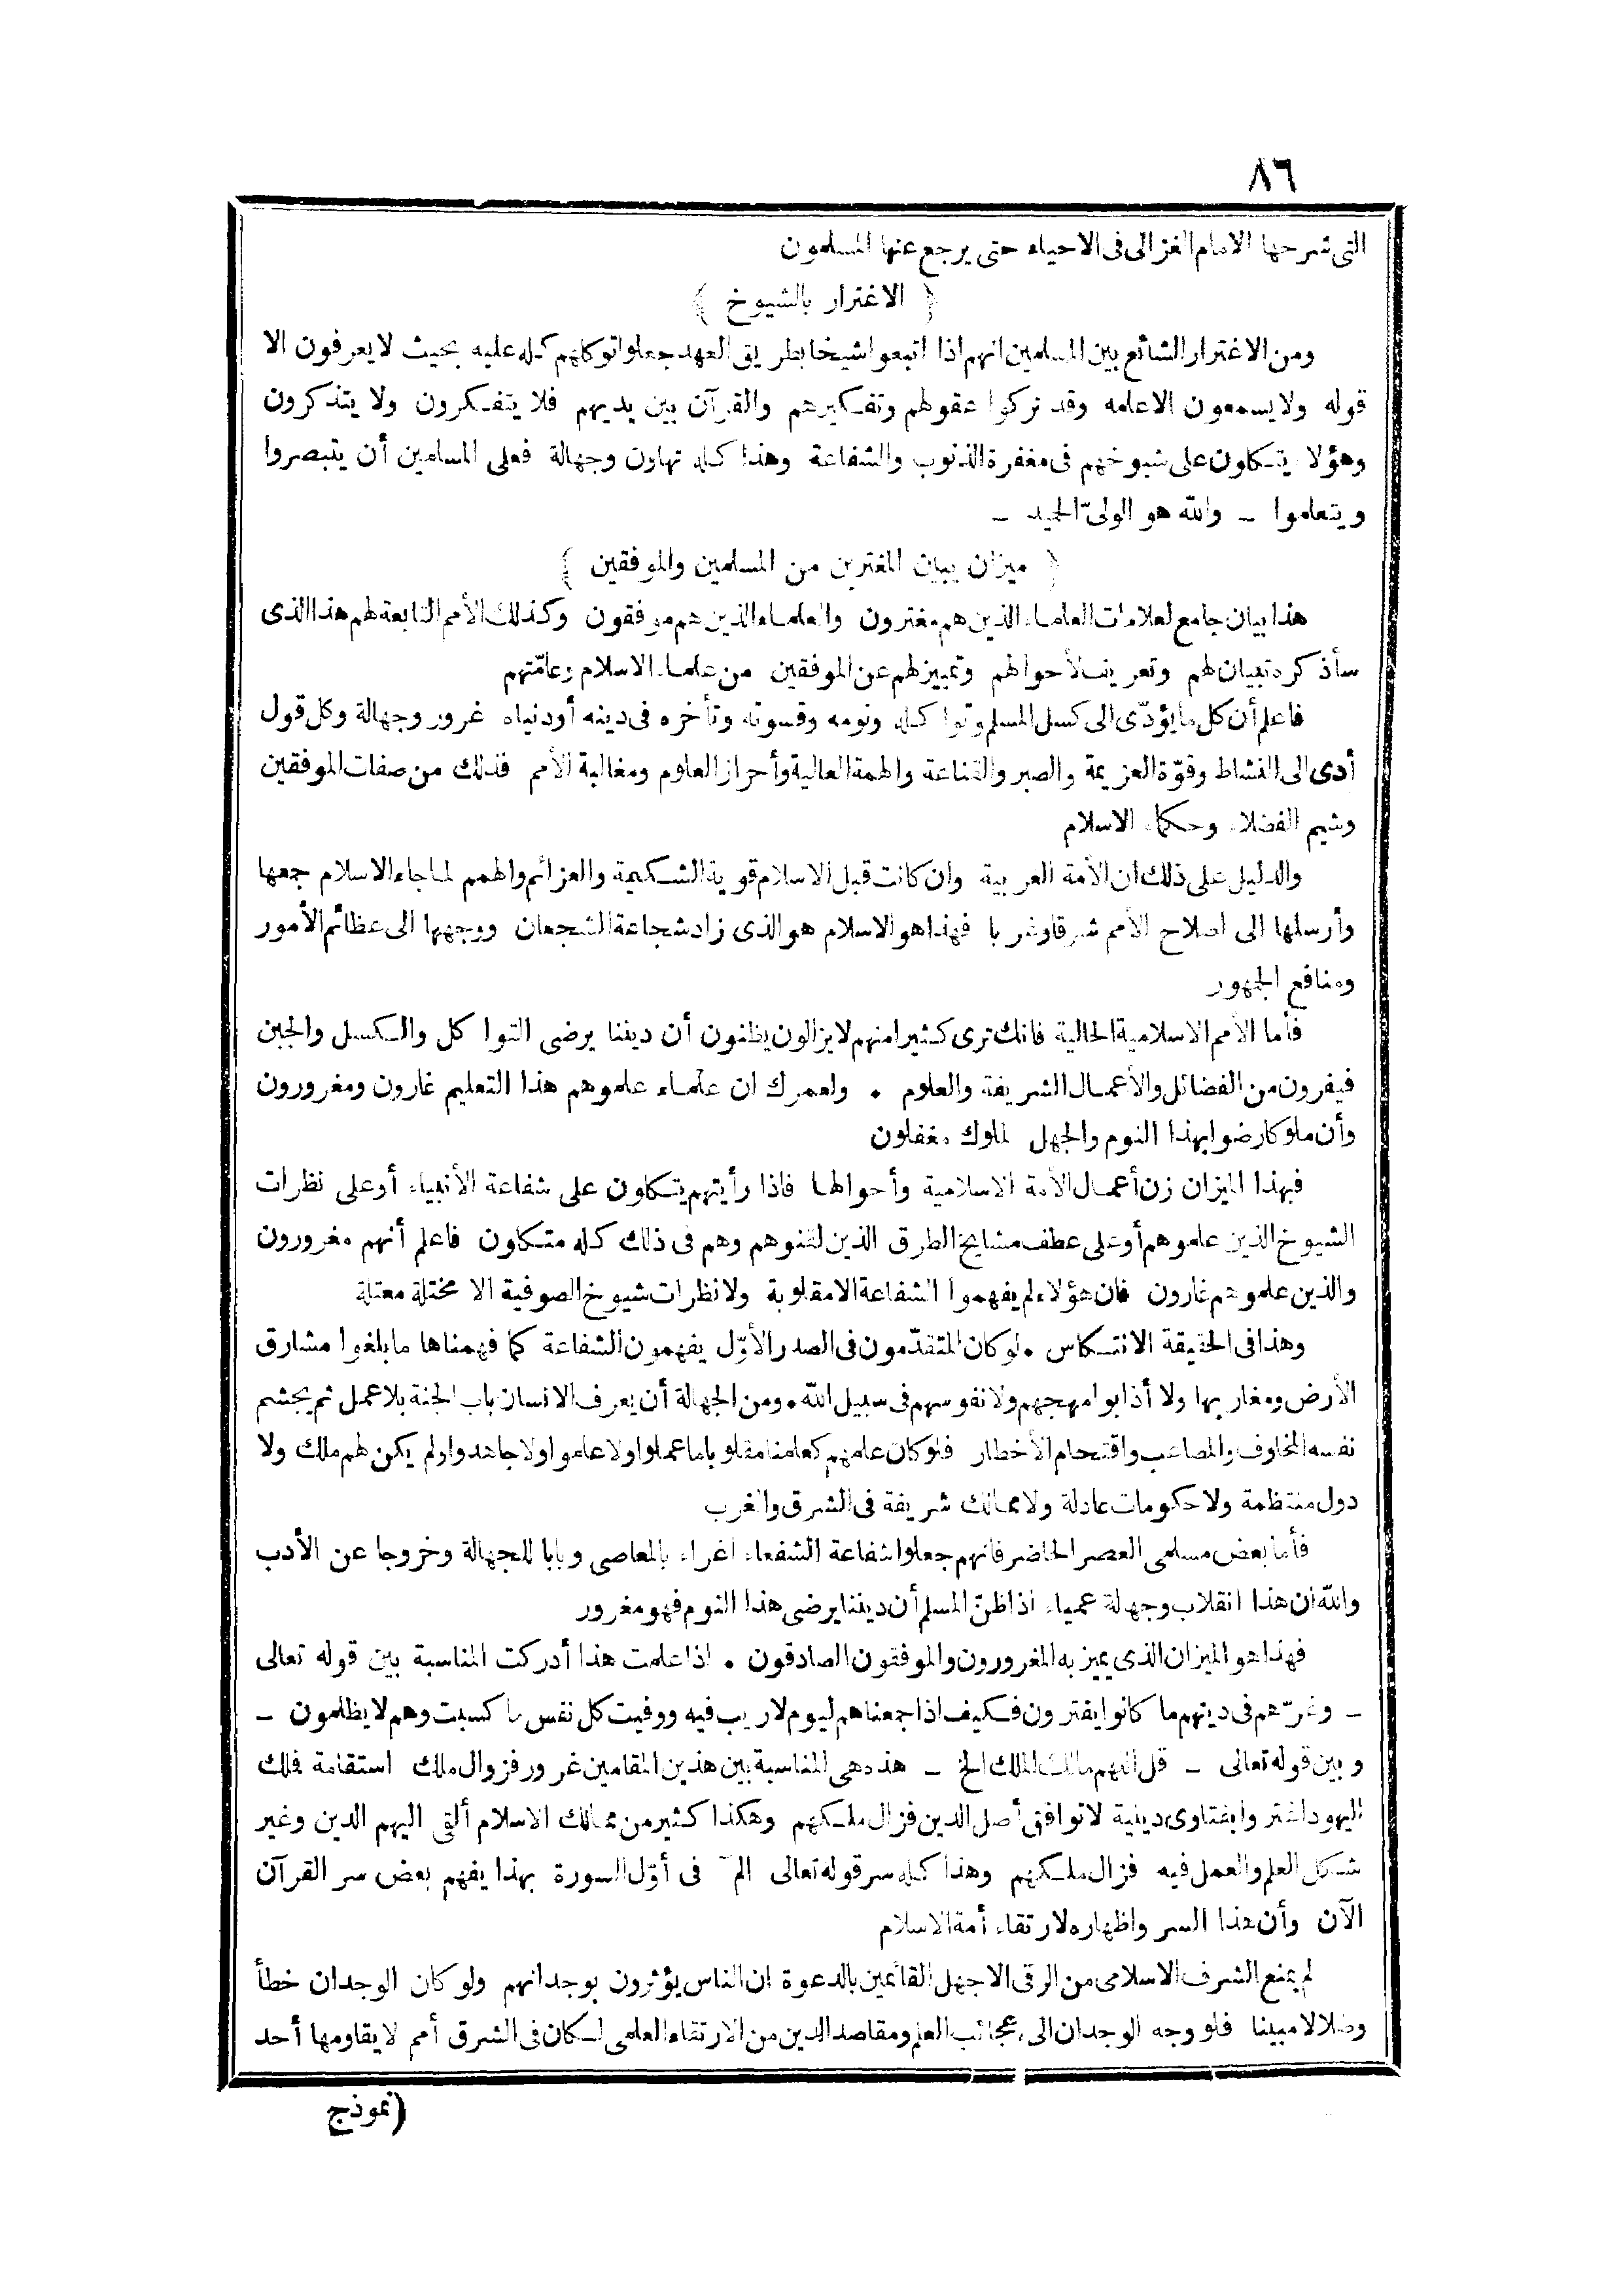 ٨٦
التى شرحها الامام الغزالى فى الاحياء حتى يرجع عنها المسلمون
﴿ الاغترار بالشيوخ ﴾
ومن الاغترار الشائع بين المسلمين انهم اذا اتبعوا شيخا بطريق العهد جعلوا توكلهم كله عليه بحيث لا يعرفون الا
قوله ولا يسمعون الا علمه وقد تركوا عقولهم وتفكيرهم والقرآن بين يديهم فلا يتفكرون ولا يتذكرون
وهؤلاء يتكلون على شيوخهم فى مغفرة الذنوب والشفاعة وهذا كله تهاون وجهالة فعلى المسلمين أن يتبصروا
ويتعلموا ـ والله هو الولىّ الحميد ـ
﴿ ميزان يبين المغترين من المسلمين والموفقين ﴾
هذا بيان جامع لعلامات العلماء الذين هم مغترون والعلماء الذين هم موفقون وكذلك الأمم التابعة لهم هذا الذى
سأذكره تبيان لهم وتعريف لأحوالهم وتمييز لهم عن الموفقين من علماء الاسلام وعامّتهم
فاعلم أن كل ما يؤدّى الى كسل المسلم وتواكله ونومه وقسوته وتأخره فى دينه أو دنياه غرور وجهالة وكل قول
أدى الى النشاط وقوّة العزيمة والصبر والقناعة والهمة العالية وأحراز العلوم ومغالبة الأمم فذلك من صفات الموفقين
وشيم الفضلاء وحكماء الاسلام
والدليل على ذلك ان الأمة العربية وان كانت قبل الاسلام قوية الشكيمة والعزائم والهمم لما جاء الاسلام جمعها
وأرسلها الى اصلاح الأمم شرقا وغربا فهذا هو الاسلام هو الذى زاد شجاعة الشجعان ووجهها الى عظائم الأمور
ومنافع الجمهور
فأما الأمم الاسلامية الحالية فانك ترى كثيرا منهم لا يزالون يظنون أن ديننا يرضى التواكل والكسل والجبن
فيفرون من الفضائل والأعمال الشريفة والعلوم • ولعمرك ان علماء علموهم هذا التعليم غارون ومغرورون
وأن ملوكا رضوا بهذا النوم والجهل لملوك مغفلون
فبهذا الميزان زن أعمال الأمة الاسلامية وأحوالها فاذا رأيتهم يتكلون على شفاعة الأنبياء أو على نظرات
الشيوخ الذين علموهم أو على عطف مشايخ الطرق الذين لقنوهم وهم فى ذلك كله متكلون فاعلم أنهم مغرورون
والذين علموهم غارون فان هؤلاء لم يفهموا الشفاعة الا مقلوبة ولا نظرات شيوخ الصوفية الا مختلة معتلة
وهذا فى الحقيقة الانتكاس • لو كان المتقدّمون فى الصدر الأوّل يفهمون الشفاعة كما فهمناها ما بلغوا مشارق
الأرض ومغاربها ولا أذابوا مهجهم ولا نفوسهم فى سبيل الله • ومن الجهالة أن يعرف الانسان باب الجنة بلا عمل ثم يجشم
نفسه المخاوف والمصاعب واقتحام الأخطار فلو كان علمهم كعلمنا مقلوبا ما عملوا ولا علموا ولا جاهدوا ولم يكن لهم ملك ولا
دول منتظمة ولا حكومات عادلة ولا ممالك شريفة فى الشرق والغرب
فأما بعض مسلمى العصر الحاضر فانهم جعلوا شفاعة الشفعاء اغراء بالمعاصى وبابا للجهالة وخروجا عن الأدب
والله ان هذا انقلاب وجهلة عمياء اذا ظنّ المسلم أن ديننا يرضى هذا النوم فهو مغرور
فهذا هو الميزان الذى يميز به المغرورون والموفقون الصادقون • اذا علمت هذا أدركت المناسبة بين قوله تعالى
ـ وغرّهم فى دينهم ما كانوا يفترون فكيف اذا جمعناهم ليوم لا ريب فيه ووفيت كل نفس ما كسبت وهم لا يظلمون ـ
وبين قوله تعالى ـ قل اللهم مالك الملك الخ ـ هذه هى المناسبة بين هذين المقامين غرور فزوال ملك استقامة فملك
اليهود اغتروا بفتاوى دينية لا توافق أصل الدين فزال ملكهم وهكذا كثير من ممالك الاسلام ألقى اليهم الدين وغير
شكل العلم والعمل فيه فزال ملكهم وهذا كله سر قوله تعالى الم فى أوّل السورة بهذا يفهم بعض سر القرآن
الآن وأن هذا السر واظهاره لارتقاء أمة الاسلام
لم يمنع الشرف الاسلامى من الرقى الا جهل القائمين بالدعوة ان الناس يؤثرون بوجدانهم ولو كان الوجدان خطأ
وضلالا مبينا فلو وجه الوجدان الى عجائب العلم ومقاصد الدين من الارتقاء العلمى لكان فى الشرق أمم لا يقاومها أحد
(نموذج